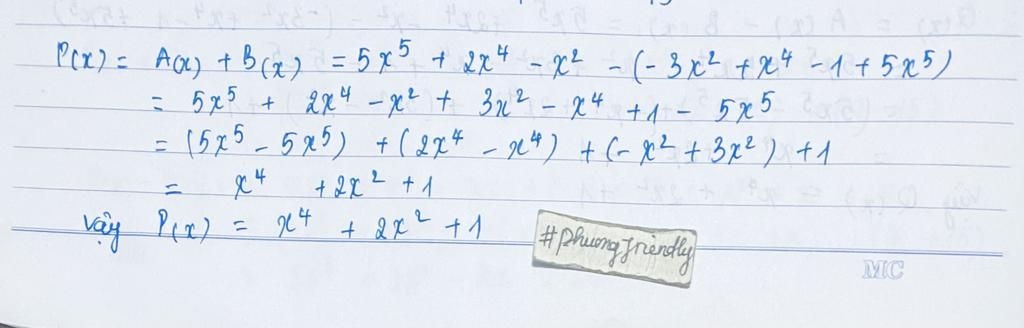 P(x) = A(x) + B(x) = 5x⁵ + 2x⁴ - x² - (-3x² + x⁴ - 1 + 5x⁵)
= 5x⁵ + 2x⁴ - x² + 3x² - x⁴ + 1 - 5x⁵
= (5x⁵ - 5x⁵) + (2x⁴ - x⁴) + (-x² + 3x²) + 1
= x⁴ + 2x² + 1
Vậy P(x) = x⁴ + 2x² + 1
#phuongfriendly
MC